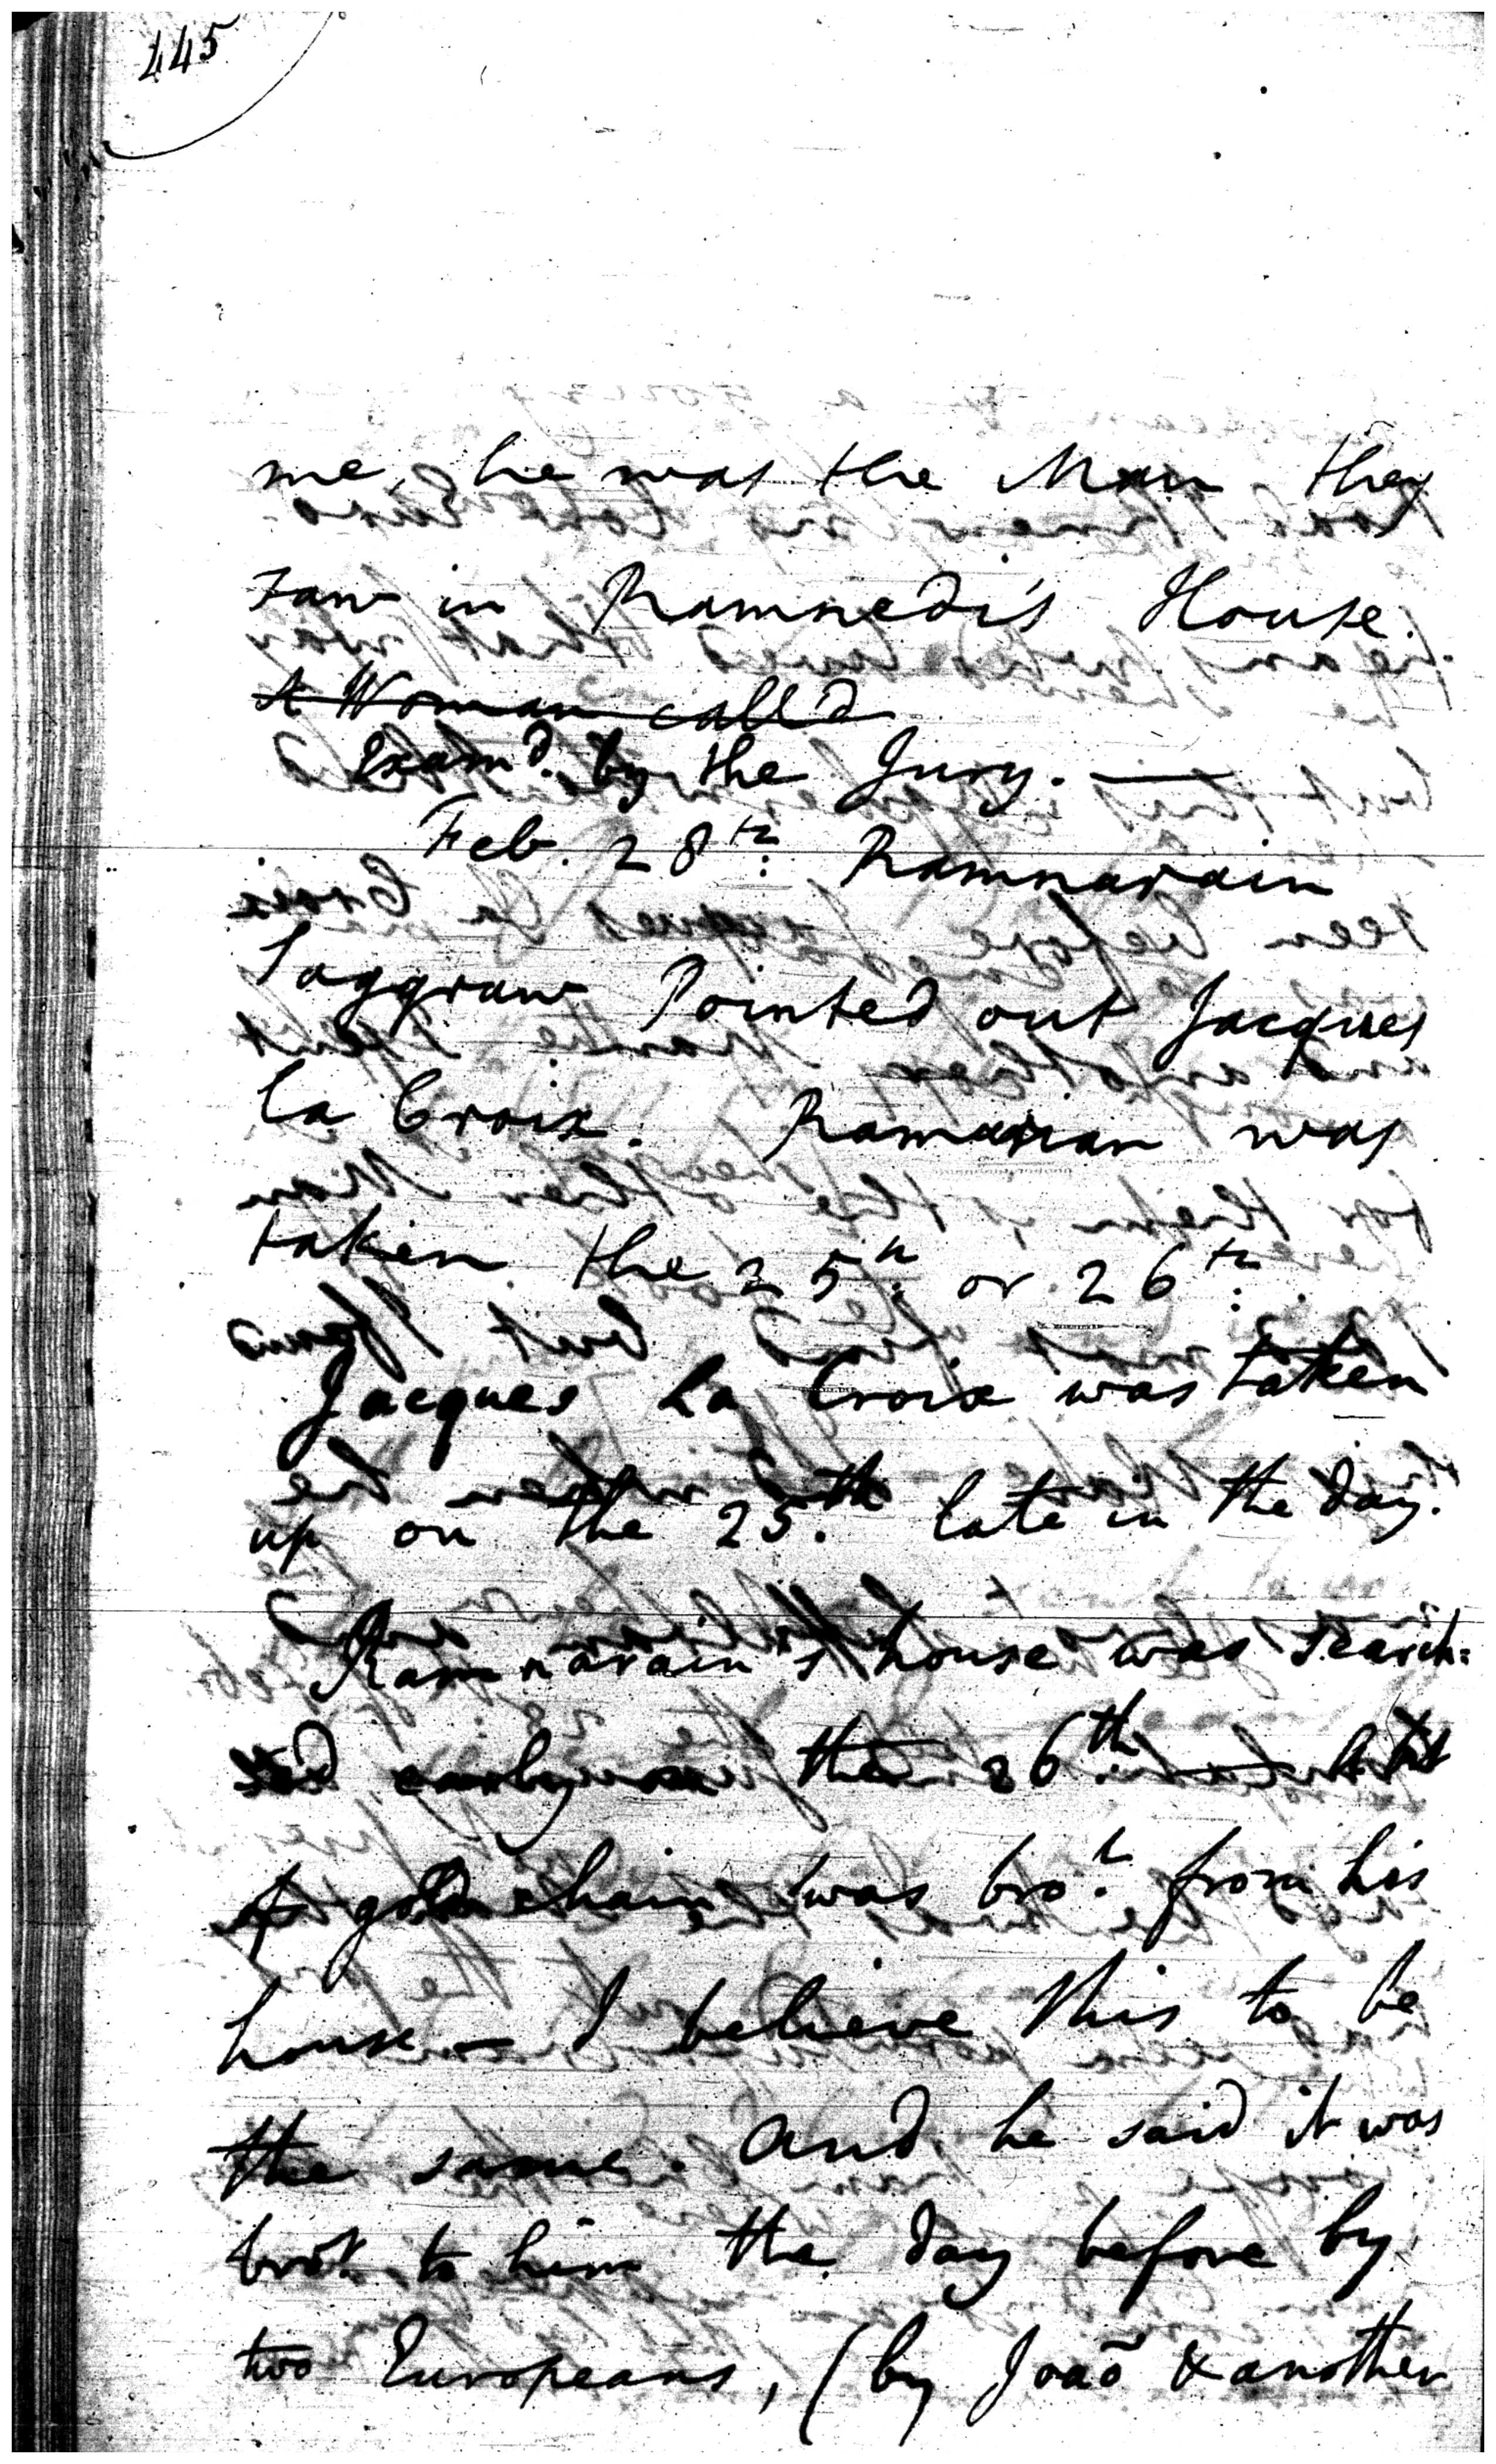 445
me, he was the Man they
saw in Ramnedi's House.
A Woman call'd
Exam.d by the Jury. —
Feb. 28th: Ramnarain
Taggraw Pointed out Jacques
La Croix. Ramnarian was
taken the 25th: or 26th:
Jacques La Croix was taken
up on the 25.th late in the day.
Ramnarain's house was search=
ed early on the 26th.
of gold chain was bro.t from his
house — I believe this to be
the same. and he said it was
bro.t to him the day before by
two Europeans, (by Joaõ & another